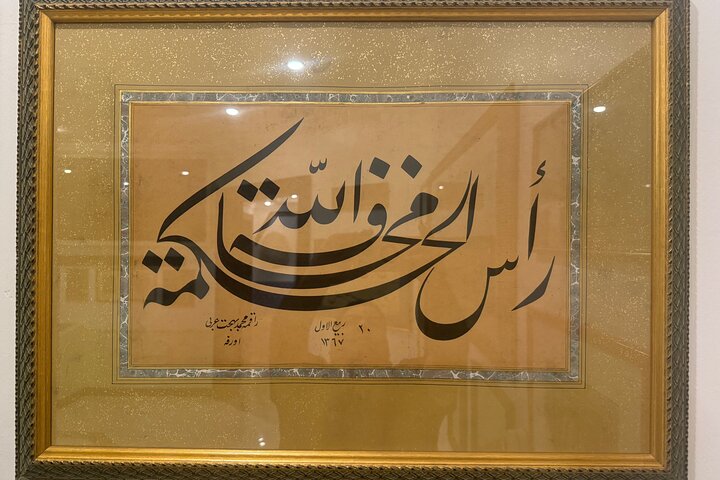 رأس الحكمة مخافة الله
راقمه محمد بهجت عربی
اورفه
٢٠ ربيع الاول
١٣٦٧